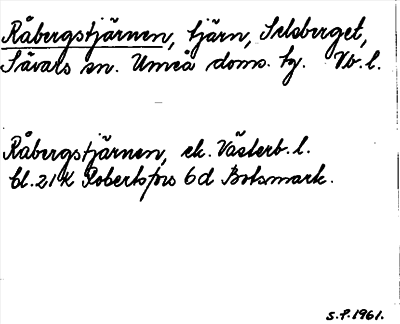 Råbergstjärnen, tjärn, Selsberget,
Sävars sn. Umeå doms. tg. Vb. l.
Råbergstjärnen, ek. Västerb. l.
bl. 21 K Robertsfors 6 d Botsmark.
S.P. 1961.